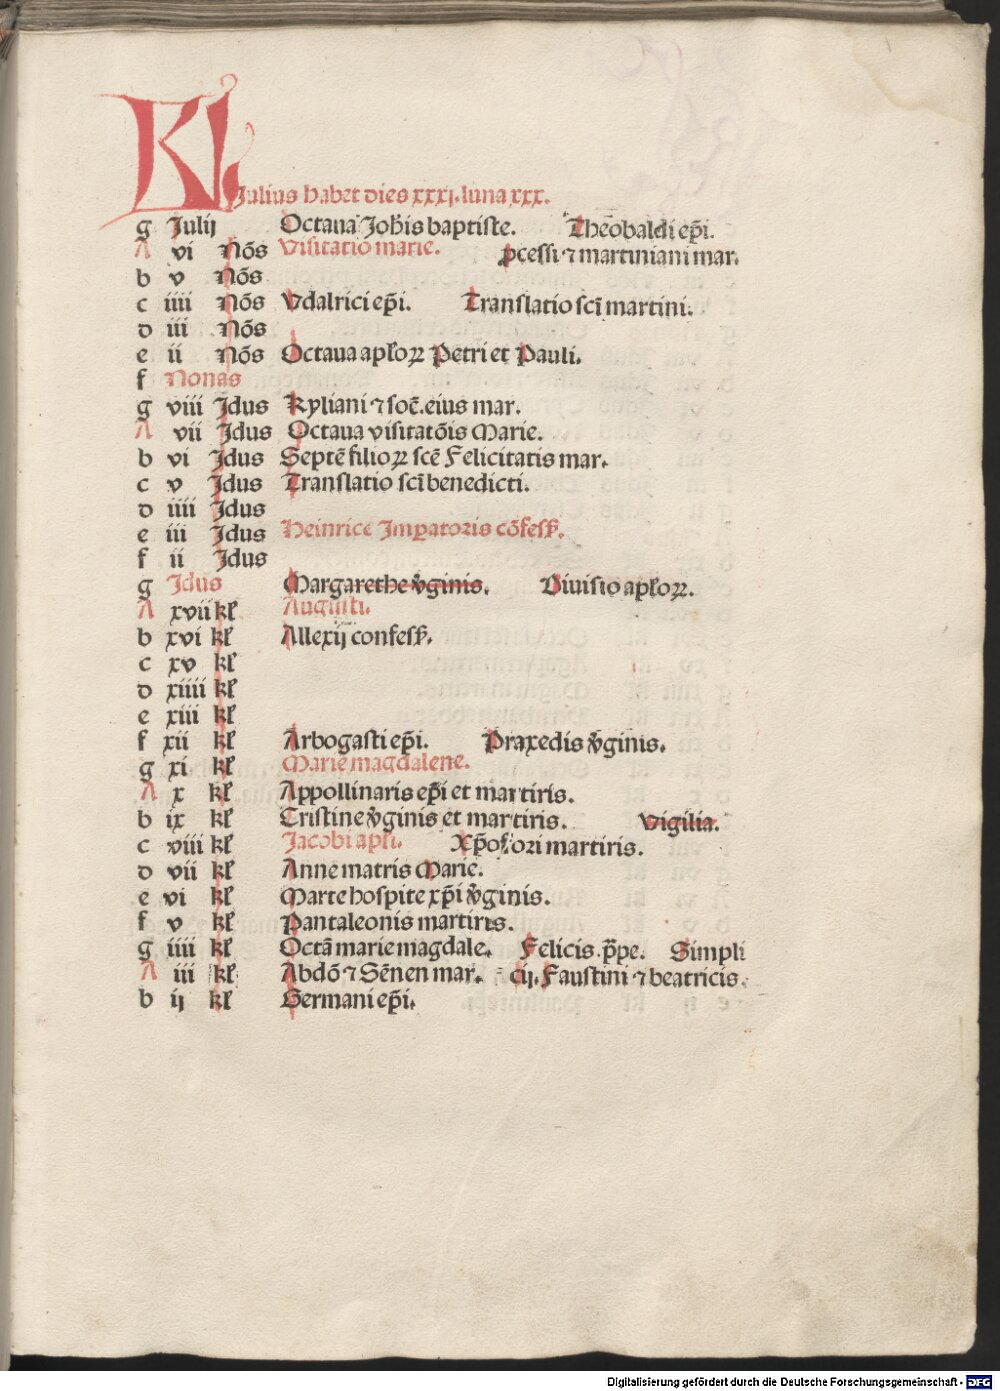 Kl
Julius habet dies xxxj. luna xxx.
g Julij Octaua Joh̄is baptiste. Theobaldi ep̄i.
A vi Nōs Visitatio marie. ꝓcessi ⁊ martiniani mar.
b v Nōs
c iiii Nōs Vdalrici ep̄i. Translatio scī martini.
d iii Nōs
e ii Nōs Octaua apl̄oꝝ Petri et Pauli.
f Nonas
g viii Jdus Kyliani ⁊ soc̄. eius mar.
A vii Jdus Octaua visitatōis Marie.
b vi Jdus Septē filioꝝ scē Felicitatis mar.
c v Jdus Translatio scī benedicti.
d iiii Jdus
e iii Jdus Heinrice Jmꝑatoris cōfess̄.
f ii Jdus
g Jdus Margarethe v̄ginis. Diuisio apl̄oꝝ.
A xvii kl̄ Augusti.
b xvi kl̄ Allexij confess̄.
c xv kl̄
d xiiii kl̄
e xiii kl̄
f xii kl̄ Arbogasti ep̄i. Praxedis v̄ginis.
g xi kl̄ Marie magdalene.
A x kl̄ Appollinaris ep̄i et martiris.
b ix kl̄ Cristine v̄ginis et martiris. vigilia.
c viii kl̄ Jacobi apl̄i. Xp̄ofori martiris.
d vii kl̄ Anne matris Marie.
e vi kl̄ Marte hospite xp̄i v̄ginis.
f v kl̄ Pantaleonis martiris.
g iiii kl̄ Octā marie magdale. Felicis. p̄pe. Simpli
A iii kl̄ Abdō ⁊ Sēnen mar. cij. Faustini ⁊ beatricis.
b ij kl̄ Germani ep̄i.
Digitalisierung gefördert durch die Deutsche Forschungsgemeinschaft - DFG